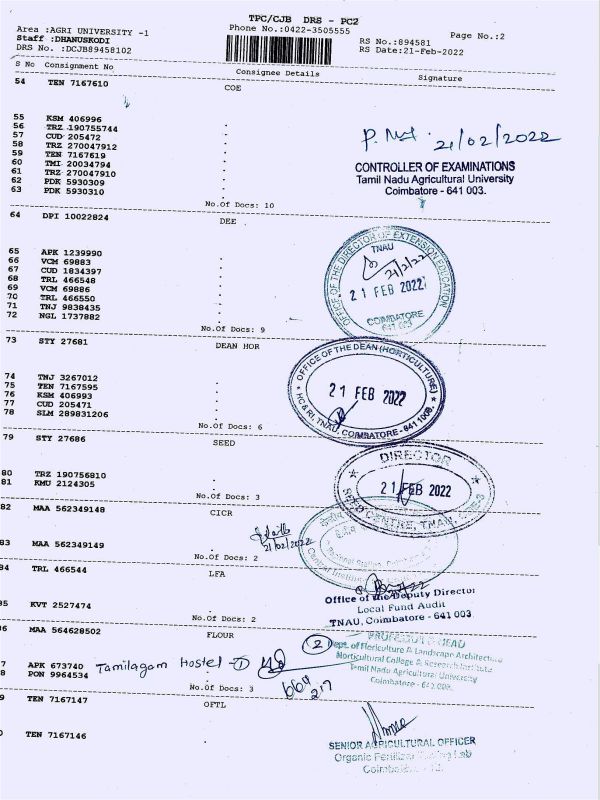 TPC/CJB DRS - PC2
Area :AGRI UNIVERSITY -1
Phone No.:0422-3505555
Page No.:2
Staff :DHANUSKODI
RS No.:894581
DRS No. :DCJB89458102
RS Date:21-Feb-2022
S No Consignment No
Consignee Details
Signature
54 TEN 7167610
COE
55 KSM 406996
56 TRZ 190755744
57 CUD 205472
58 TRZ 270047912
59 TEN 7167619
60 TMI 20034794
61 TRZ 270047910
62 PDK 5930309
63 PDK 5930310
21/02/2022
CONTROLLER OF EXAMINATIONS
Tamil Nadu Agricultural University
Coimbatore - 641 003.
No.Of Docs: 10
64 DPI 10022824
DEE
65 APK 1239990
66 VCM 69883
67 CUD 1834397
68 TRL 466548
69 VCM 69886
70 TRL 466550
71 TNJ 9838435
72 NGL 1737882
OFFICE OF THE DIRECTOR OF EXTENSION EDUCATION
TNAU
21/2/22
21 FEB 2022
COIMBATORE
641 003
No.Of Docs: 9
73 STY 27681
DEAN HOR
74 TNJ 3267012
75 TEN 7167595
76 KSM 406993
77 CUD 205471
78 SLM 289831206
OFFICE OF THE DEAN (HORTICULTURE)
21 FEB 2022
HC & RI, TNAU, COIMBATORE - 641
No.Of Docs: 6
79 STY 27686
SEED
80 TRZ 190756810
81 KMU 2124305
DIRECTOR
21 FEB 2022
SEED CENTRE, TNAU,
No.Of Docs: 3
82 MAA 562349148
CICR
21/02/2022
83 MAA 562349149
No.Of Docs: 2
84 TRL 466544
LFA
Office of the Deputy Director
Local Fund Audit
TNAU, Coimbatore - 641 003.
85 KVT 2527474
No.Of Docs: 2
6 MAA 564628502
FLOUR
2
PROFESSOR & HEAD
Dept. of Floriculture & Landscape Architecture
Horticultural College & Research Institute
Tamil Nadu Agricultural University
Coimbatore - 641 003.
7 APK 673740 Tamilagam Hostel - 1
8 PON 9964534
No.Of Docs: 3
9 TEN 7167147
OFTL
0 TEN 7167146
SENIOR AGRICULTURAL OFFICER
Organic Fertilizer Testing Lab